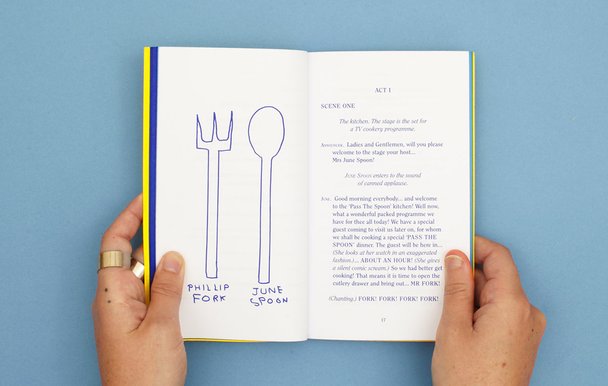 PHILLIP
FORK
JUNE
SPOON
ACT 1
SCENE ONE
The kitchen. The stage is the set for
a TV cookery programme.
Announcer. Ladies and Gentlemen, will you please
welcome to the stage your host...
Mrs June Spoon!
June Spoon enters to the sound
of canned applause.
June. Good morning everybody... and welcome
to the 'Pass The Spoon' kitchen! Well now,
what a wonderful packed programme we
have for thee all today! We have a special
guest coming to visit us later on, for whom
we shall be cooking a special 'PASS THE
SPOON' dinner. The guest will be here in...
(She looks at her watch in an exaggerated
fashion.)... ABOUT AN HOUR! (She gives
a silent comic scream.) So we had better get
cooking! That means it is time to open the
cutlery drawer and bring out... MR FORK!
(Chanting.) FORK! FORK! FORK! FORK!
17